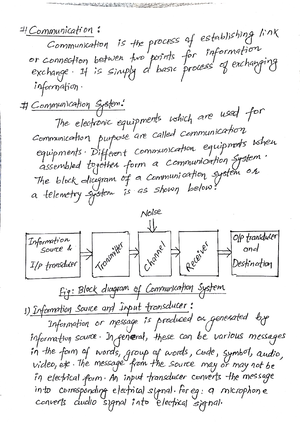 # Communication :
Communication is the process of establishing link
or connection between two points for information
exchange. It is simply a basic process of exchanging
information.
# Communication System:
The electronic equipments which are used for
communication purpose are called communication
equipments. Different communication equipments when
assembled together form a communication system.
The block diagram of a communication system or
a telemetry system is as shown below:
Noise
Information source & I/P transducer
Transmitter
Channel
Receiver
O/p transducer and Destination
Fig: Block diagram of Communication System
1) Information Source and input transducer :
Information or message is produced or generated by
information source. In general, these can be various messages
in the form of words, group of words, code, symbol, audio,
video, etc. The message from the source may or may not be
in electrical form. An input transducer converts the message
into corresponding electrical signal. for eg: a microphone
converts audio signal into electrical signal.